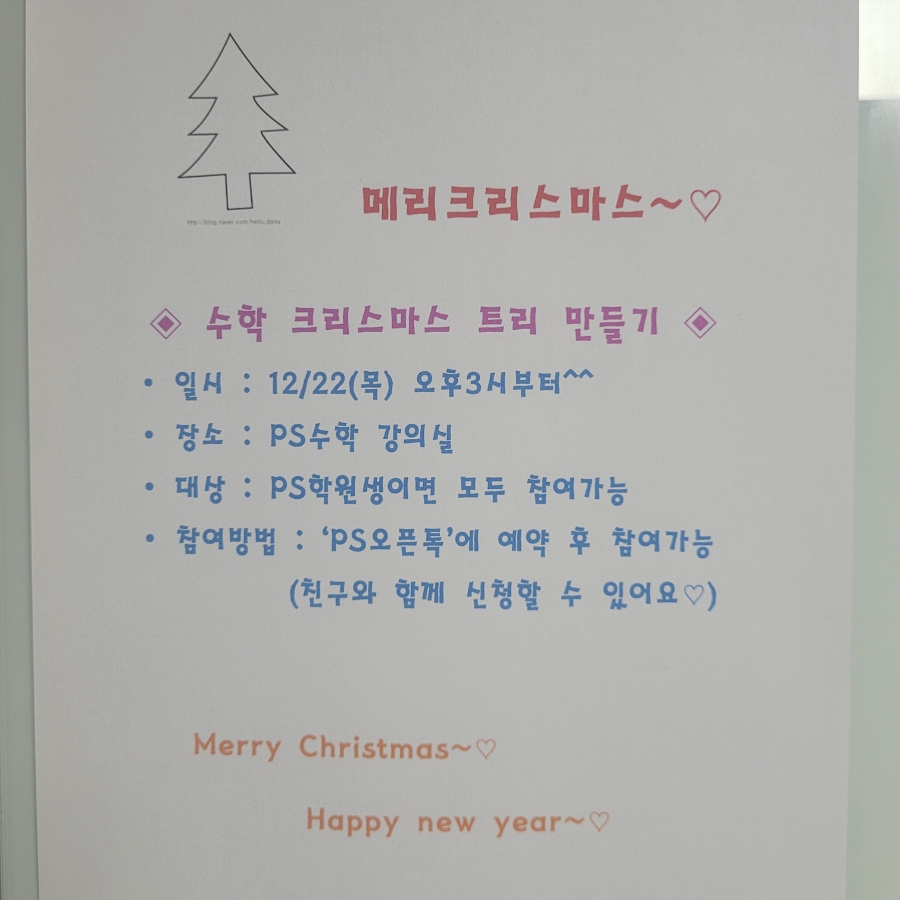 http://blog.naver.com/hello_daisy
메리크리스마스~♡
◈ 수학 크리스마스 트리 만들기 ◈
• 일시 : 12/22(목) 오후3시부터^^
• 장소 : PS수학 강의실
• 대상 : PS학원생이면 모두 참여가능
• 참여방법 : ‘PS오픈톡’에 예약 후 참여가능
(친구와 함께 신청할 수 있어요♡)
Merry Christmas~♡
Happy new year~♡